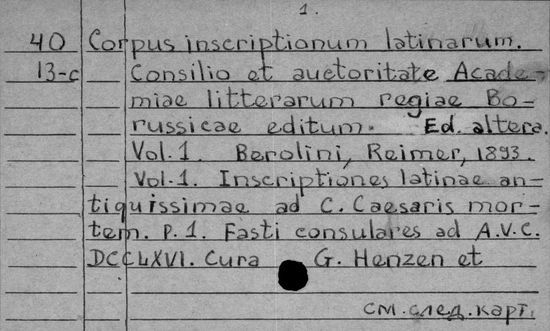 1.
40 Corpus inscriptionum latinarum.
13-c Consilio et auctoritate Acade-
miae litterarum regiae Bo-
russicae editum. Ed. altera.
Vol. 1. Berolini, Reimer, 1893.
Vol. 1. Inscriptiones latinae an-
tiquissimae ad C. Caesaris mor-
tem. P. 1. Fasti consulares ad A.V.C.
DCCLXVI. Cura G. Henzen et
см. след. карт.